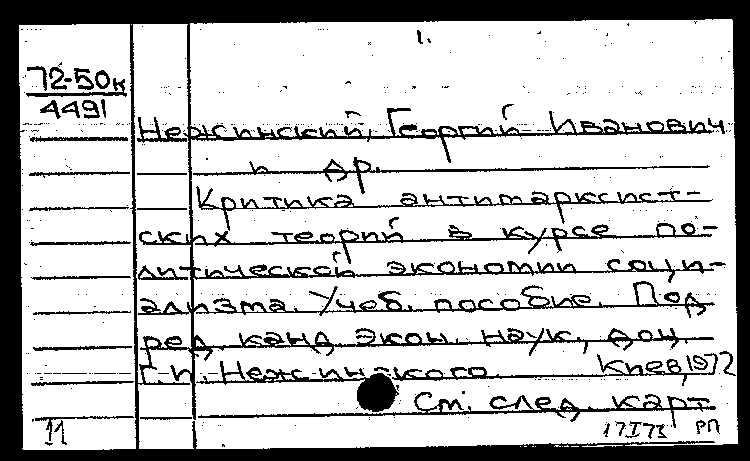 1.
72-50к
4491
Нежинский, Георгий Иванович
и др.
Критика антимарксист-
ских теорий в курсе по-
литической экономии соци-
ализма. Учеб. пособие. Под
ред. канд. экон. наук., доц.
Г.И. Нежинского. Киев, 1972
См. след. карт
11 17 I 73 РП